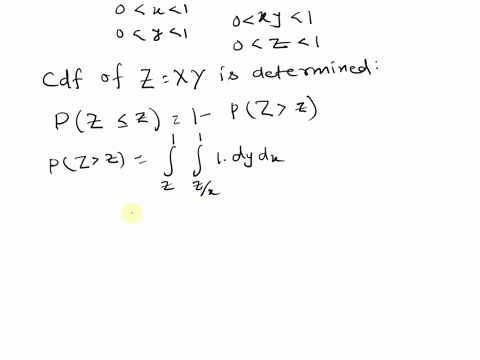 0 < x < 1
0 < y < 1
0 < xy < 1
0 < z < 1
Cdf of Z = XY is determined:
P(Z ≤ z) = 1 - P(Z > z)
P(Z > z) = ∫_z^1 ∫_{z/x}^1 1. dy dx